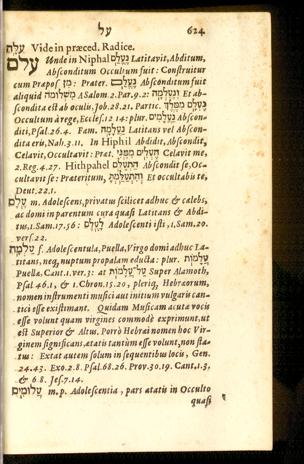 על 624
עלה Vide in præced. Radice.
עלם Unde in Niphal נֶעְלַם Latitavit, Abditum,
Absconditum Occultum fuit: Construitur
cum Præpos. מִן: Præter. נֶעְלַם Absconditum fuit
aliquid משלמה A Salom. 2. Par. 9.2. וְנֶעֶלְמָה Et ab-
scondita est ab oculis. Job. 28.21. Partic.
נֶעְלָם מִמֶּלֶךְ
Occultum à rege, Eccles. 12. 14: plur. נַעֲלָמִים Abscon-
diti, Psal. 26.4. Fæm. נַעֲלָמָה Latitans vel Abscon-
dita erit, Nah. 3. 11. In Hiphil Abdidit, Abscondit,
Celavit, Occultavit: Præt. הֶעְלִים מִמֶּנִּי Celavit me,
2. Reg. 4. 27. Hithpahel הִתְעַלֵּם Abscondit se, Oc-
cultavit se: Præteritum, וְהִתְעַלַּמְתָּ Et occultabis te,
Deut. 22. 1.
עֶלֶם m. Adolescens, privatus scilicet adhuc & cælebs,
ac domi in parentum cura quasi Latitans & Abdi-
tus, 1. Sam. 17.56: לָעֶלֶם Adolescenti isti, 1. Sam. 20.
vers. 22.
עַלְמָה f. Adolescentula, Puella, Virgo domi adhuc La-
titans, neq; nuptum propalam educta: plur. עֲלָמוֹת
Puellæ. Cant. 1. ver. 3: at עַל־עֲלָמוֹת Super Alamoth,
Psal 46. 1, & 1. Chron. 15. 20, pleriq; Hebræorum,
nomen instrumenti musici aut initium vulgaris can-
tici esse existimant. Quidam Musicam acuta voces
esse volunt quam virgines commodè exprimunt, ut
est Superior & Altus. Porrò Hebræi nomen hoc Vir-
ginem significans, ætatis tantùm esse volunt, non sta-
tus: Extat autem solum in sequentibus locis, Gen.
24. 43. Exo. 2. 8. Psal. 68. 26. Prov. 30. 19. Cant. 1. 3,
& 6. 8. Jes. 7. 14.
עֲלוּמִים m. p. Adolescentia, pars ætatis in Occulto
quasi